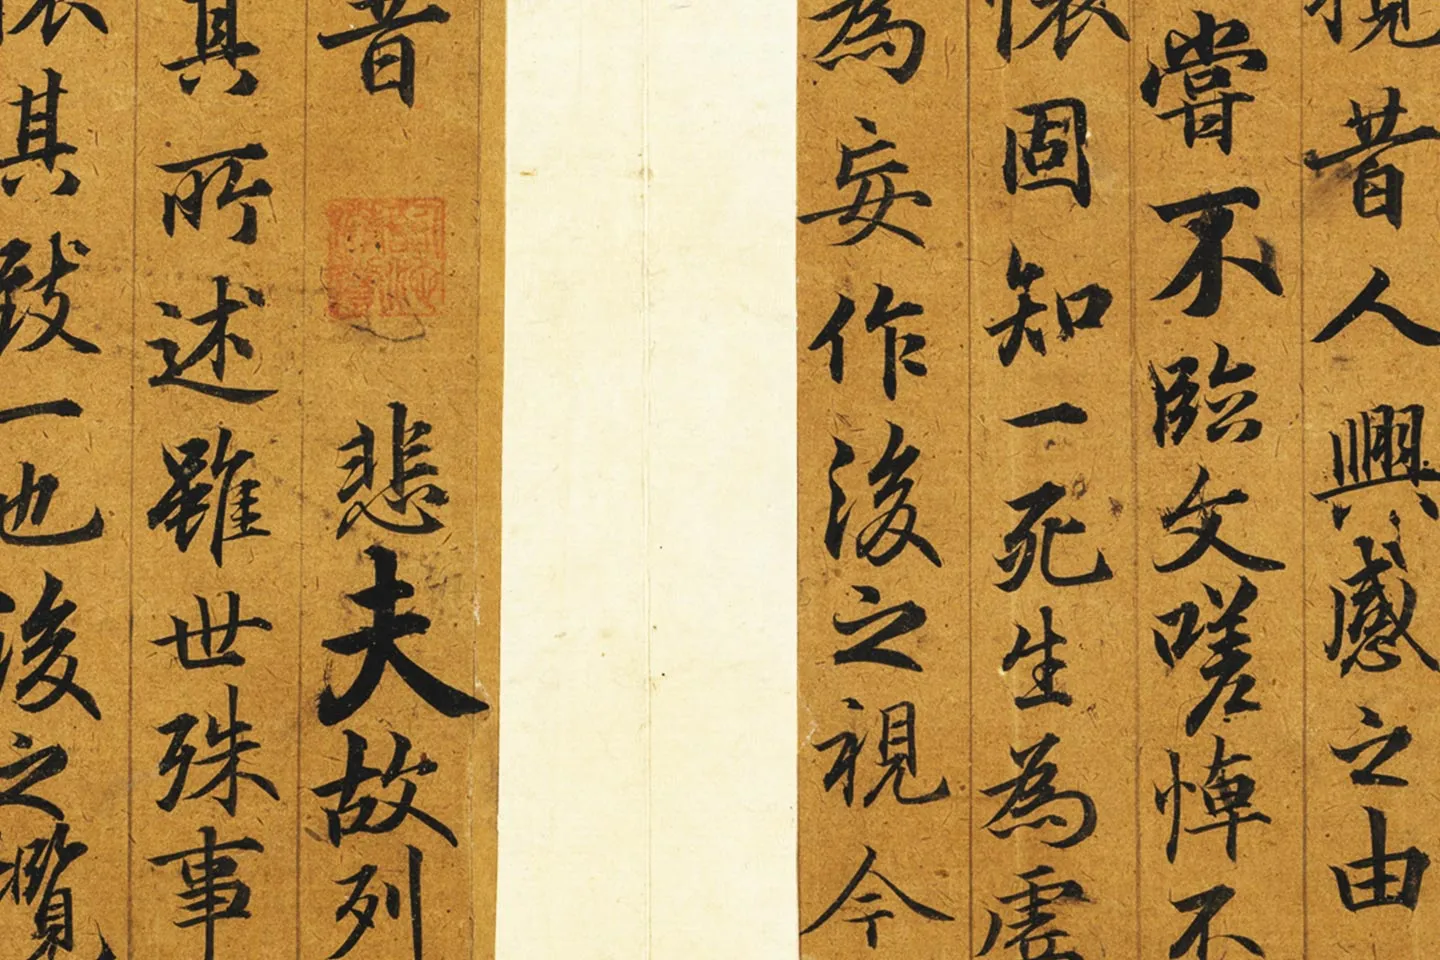 攬昔人興感之由
嘗不臨文嗟悼不
懷固知一死生為虛
為妄作後之視今
昔 悲夫故列
其所述雖世殊事
懷其致一也後之攬